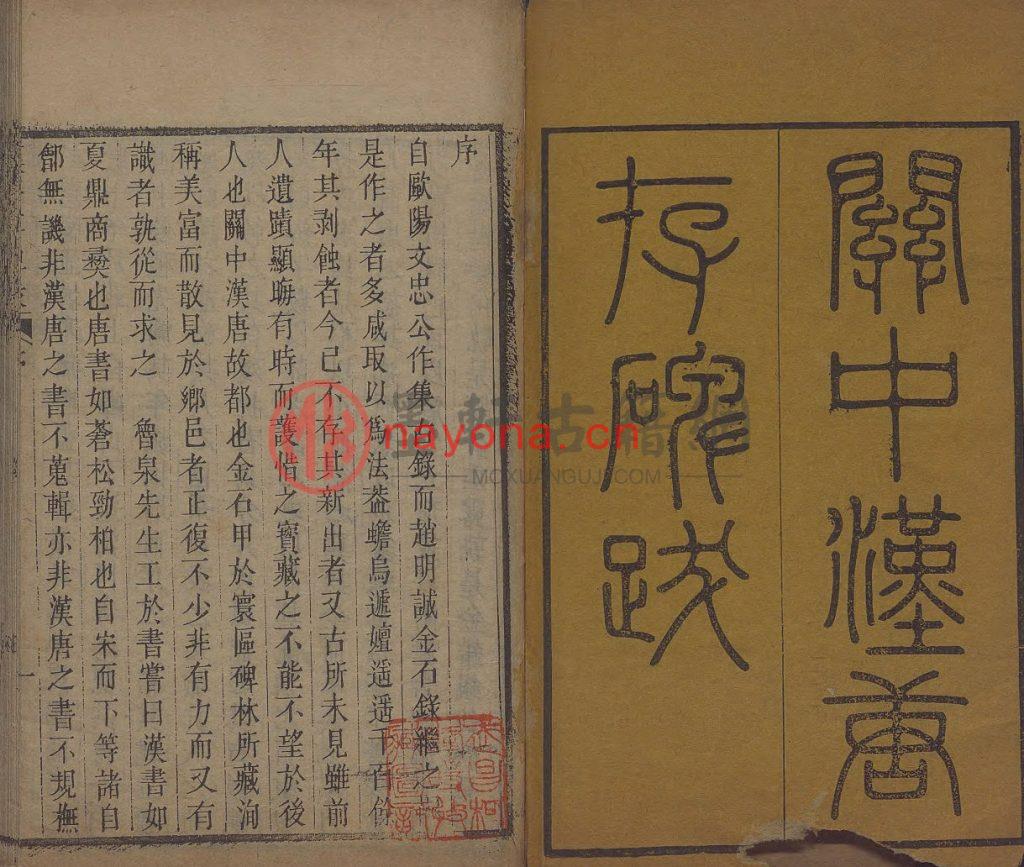 關中漢唐
存碑跋
序
自歐陽文忠公作集古錄而趙明誠金石錄繼之
是作之者多咸取以爲法葢蟾烏遞嬗遥遥千百
年其剥蝕者今已不存其新出者又古所未見雖前
人遺蹟顯晦有時而護惜之寶藏之不能不望於後
人也關中漢唐故都也金石甲於寰區碑林所藏洵
稱美富而散見於鄉邑者正復不少非有力而又有
識者孰從而求之 魯泉先生工於書嘗曰漢書如
夏鼎商彝也唐書如蒼松勁柏也自宋而下等諸自
鄶無譏非漢唐之書不蒐輯亦非漢唐之書不規撫
一
墨軒古籍網
nayona.cn
MOXUANGUJI.COM